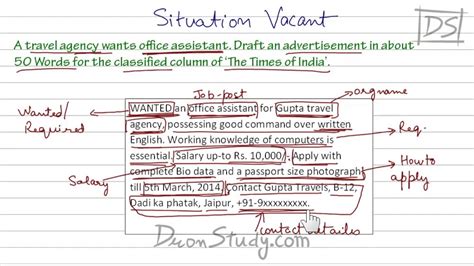 Situation Vacant
DS
A travel agency wants office assistant. Draft an advertisement in about
50 Words for the classified column of 'The Times of India'.
Job-post
orgname
Wanted/
Required
WANTED an office assistant for Gupta travel
agency, possessing good command over written
English. Working knowledge of computers is
essential. Salary up-to Rs. 10,000/-. Apply with
complete Bio data and a passport size photograph
till 5th March, 2014. Contact Gupta Travels, B-12,
Dadi ka phatak, Jaipur, +91-9xxxxxxxxx.
Req.
How to
apply
Salary
DronStudy.com
contact detailes